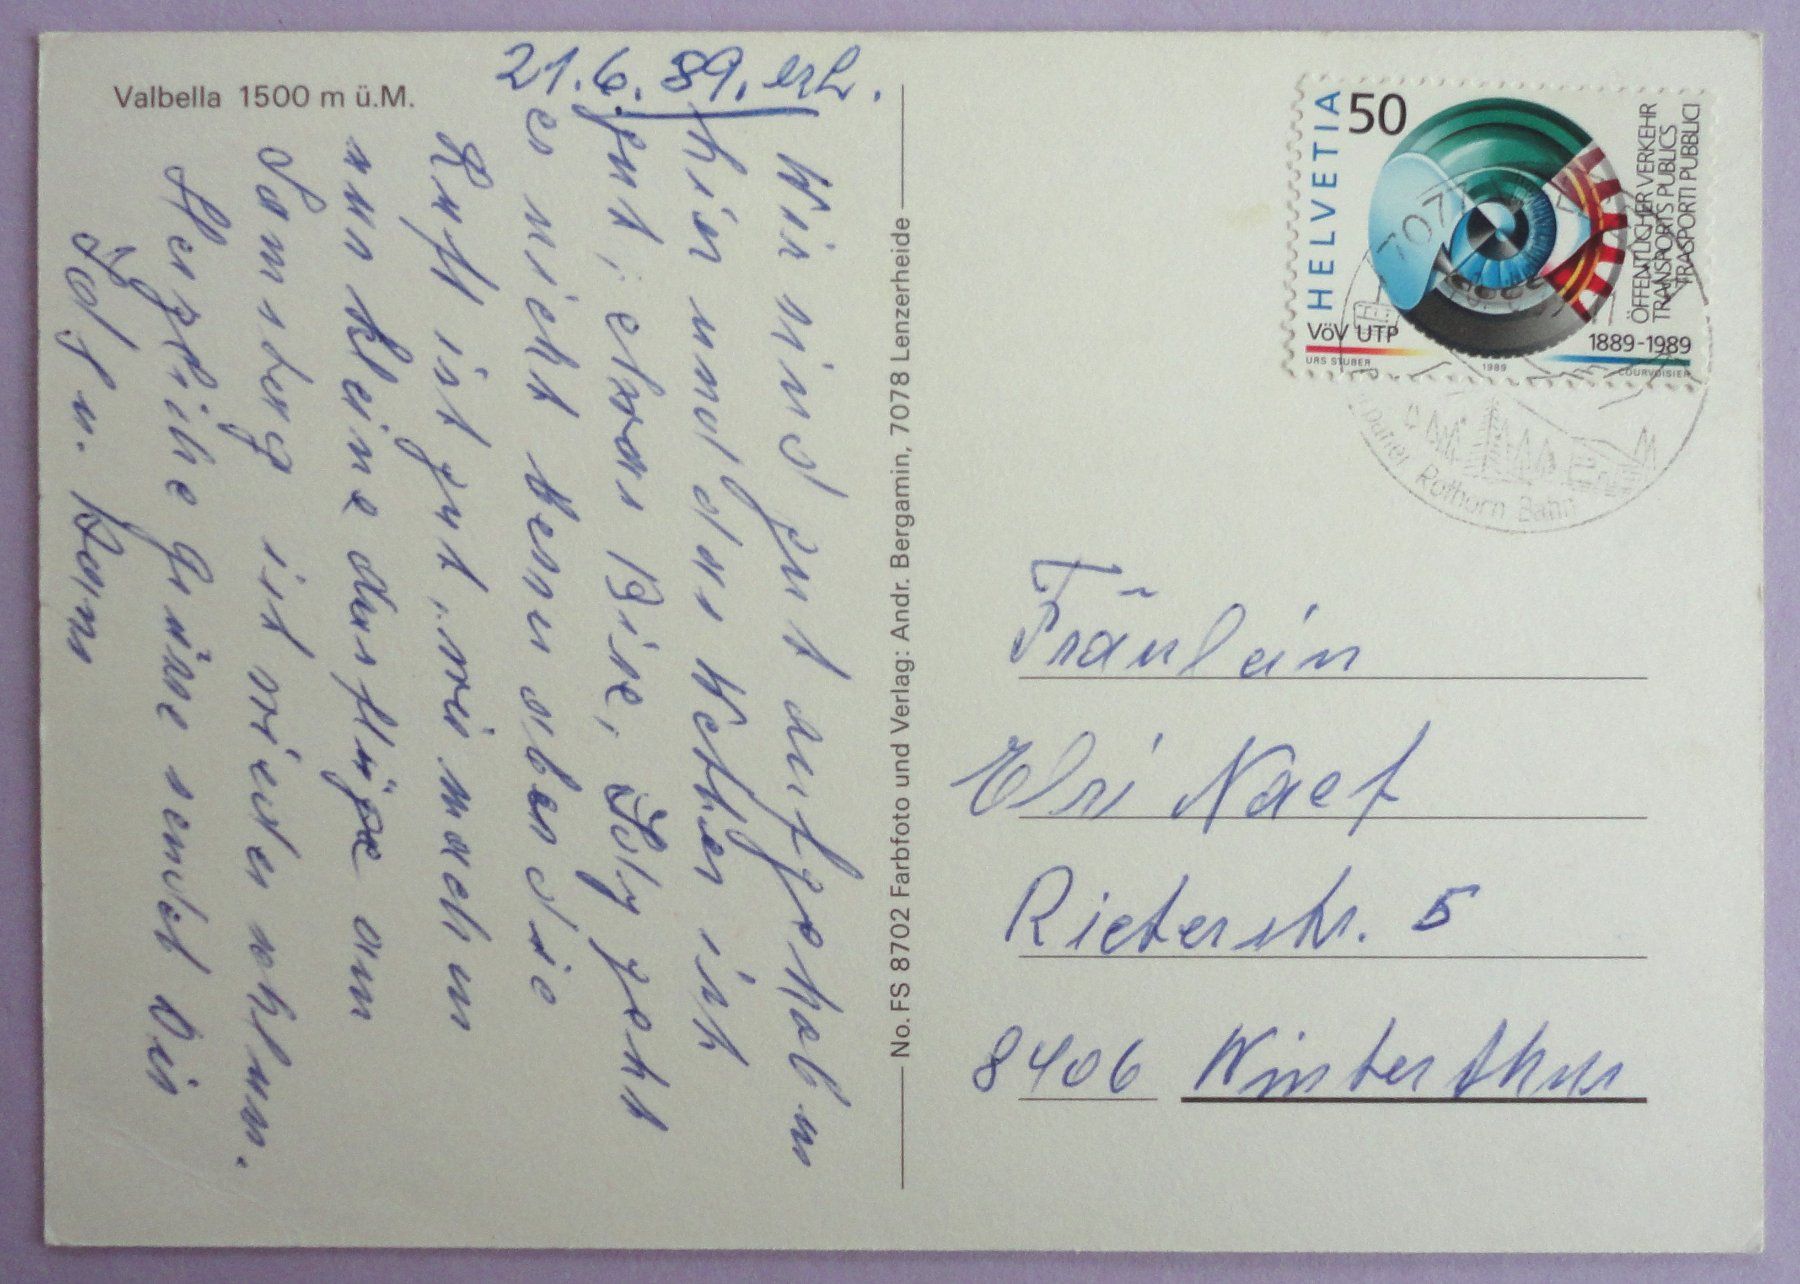 Valbella 1500 m ü.M.
21.6.89. erh.
Wir sind gut aufgehob.n
hier und das Wetter ist
gut, etwas Bise,
geht
es nicht wenn oben die
Luft ist gut, wir mach n
nun kleine Ausflüge am
Samstag ist wieder schluss.
Herzliche Grüsse sendet Dir
u. Hans
No. FS 8702 Farbfoto und Verlag: Andr. Bergamin, 7078 Lenzerheide
HELVETIA
50
ÖFFENTLICHER VERKEHR
TRANSPORTS PUBLICS
TRASPORTI PUBBLICI
VöV UTP
1889-1989
URS STUBER
1989
COURVOISIER
7077
Rothorn Bahn
Fräulein
Elsi Naef
Rieterstr. 5
8406 Winterthur